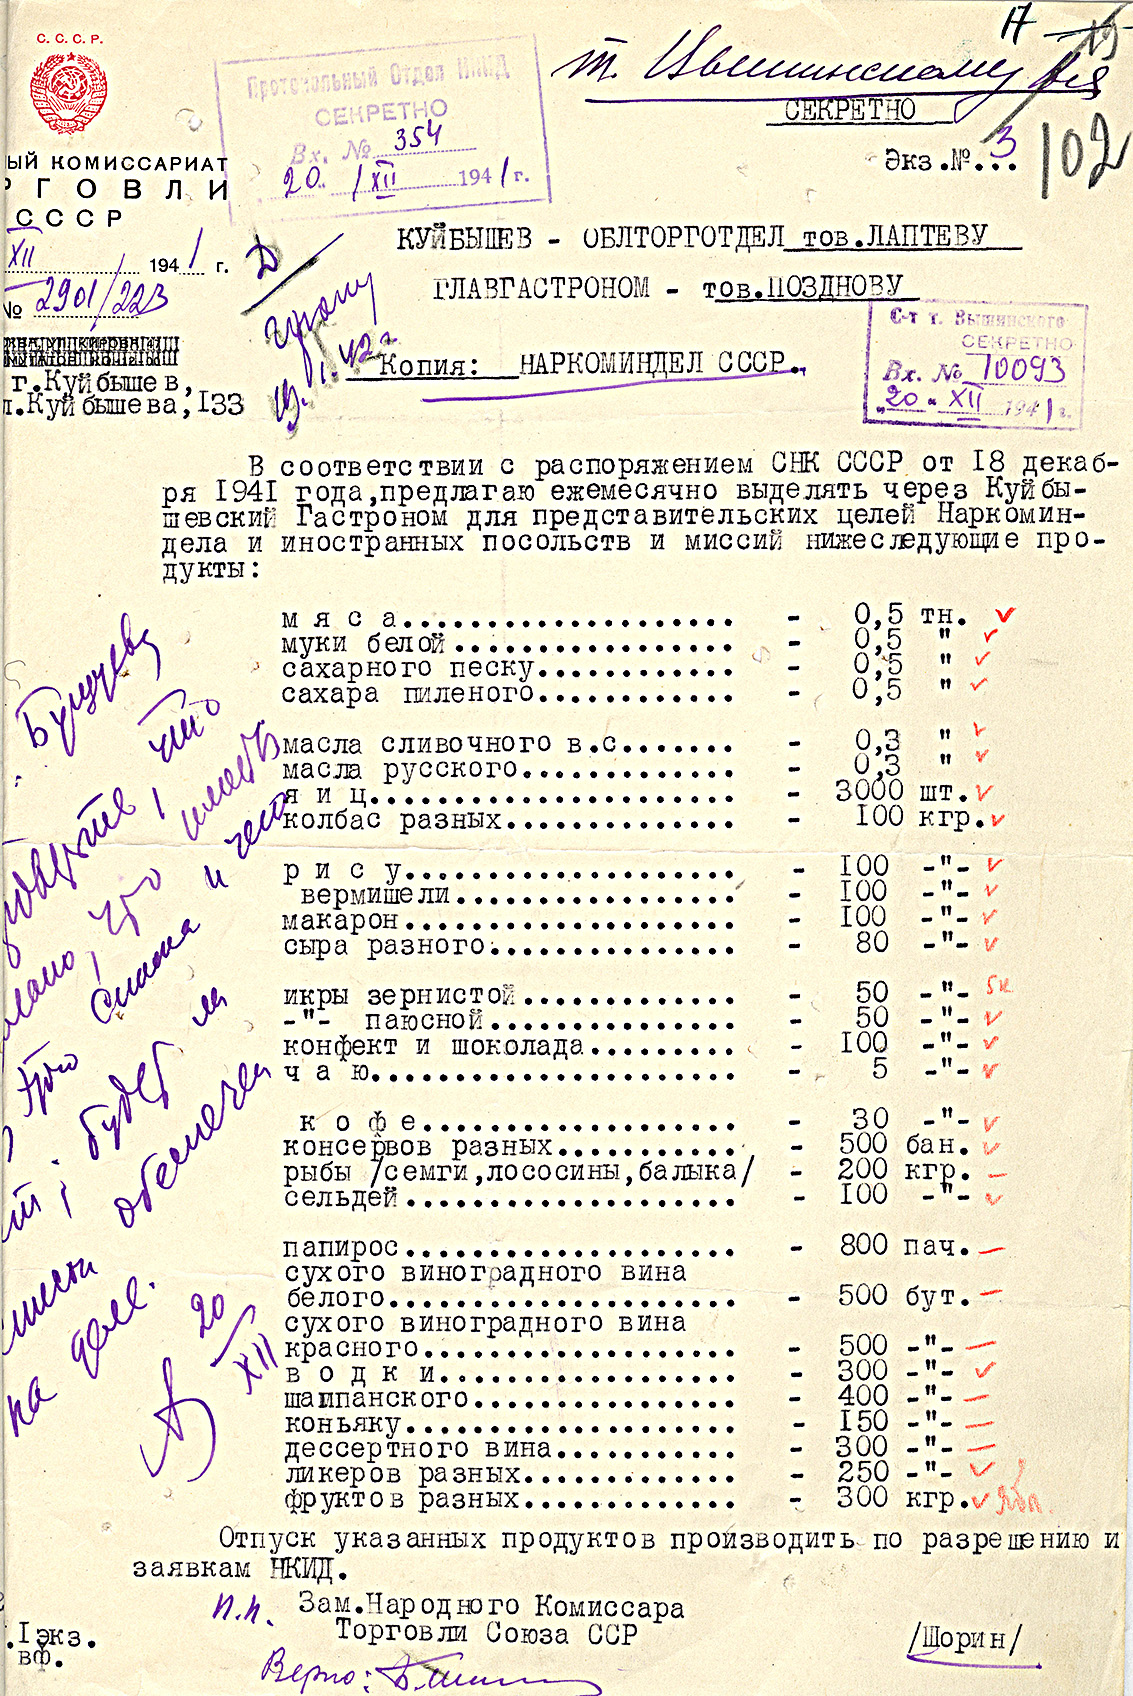 С. С. С. Р.
ЫЙ КОМИССАРИАТ
РГОВЛИ
СССР
XII 1941 г.
№ 2901/223
г.Куйбышев,
л.Куйбышева,133
Протокольный Отдел НКИД
СЕКРЕТНО
Вх. № 354
20 / XII 1941 г.
17
19
т. Вышинскому
СЕКРЕТНО
Экз.№ 3...
102
КУЙБЫШЕВ - ОБЛТОРГОТДЕЛ тов.ЛАПТЕВУ
ГЛАВГАСТРОНОМ - тов.ПОЗДНОВУ
Копия: НАРКОМИНДЕЛ СССР.
Д
19.I.42 г.
С-т т. Вышинского
СЕКРЕТНО
Вх. № 10093
"20" XII 1941 г.
В соответствии с распоряжением СНК СССР от 18 декаб-
ря 1941 года,предлагаю ежемесячно выделять через Куйбы-
шевский Гастроном для представительских целей Наркомин-
дела и иностранных посольств и миссий нижеследующие про-
дукты:
м я с а.................... - 0,5 тн.
муки белой................. - 0,5 "
сахарного песку............ - 0,5 "
сахара пиленого............ - 0,5 "
масла сливочного в.с....... - 0,3 "
масла русского............. - 0,3 "
я и ц...................... - 3000 шт.
колбас разных.............. - 100 кгр.
р и с у.................... - 100 -"-
вермишели................. - 100 -"-
макарон.................... - 100 -"-
сыра разного............... - 80 -"-
икры зернистой............. - 50 -"- 5к
-"- паюсной............... - 50 -"-
конфект и шоколада......... - 100 -"-
ч а ю...................... - 5 -"-
к о ф е................... - 30 -"-
консервов разных........... - 500 бан.
рыбы /семги,лососины,балыка/ - 200 кгр.
сельдей.................... - 100 -"-
папирос.................... - 800 пач.
сухого виноградного вина
белого..................... - 500 бут.
сухого виноградного вина
красного................... - 500 -"-
в о д к и.................. - 300 -"-
шампанского................ - 400 -"-
коньяку.................... - 150 -"-
дессертного вина........... - 300 -"-
ликеров разных............. - 250 -"-
фруктов разных............. - 300 кгр. Ябл.
что
и
это
будет ли
обеспечен
на деле.
20
XII
Отпуск указанных продуктов производить по разрешению и
заявкам НКИД.
п.п. Зам.Народного Комиссара
Торговли Союза ССР /Шорин/
.1 экз.
вф.
Верно: